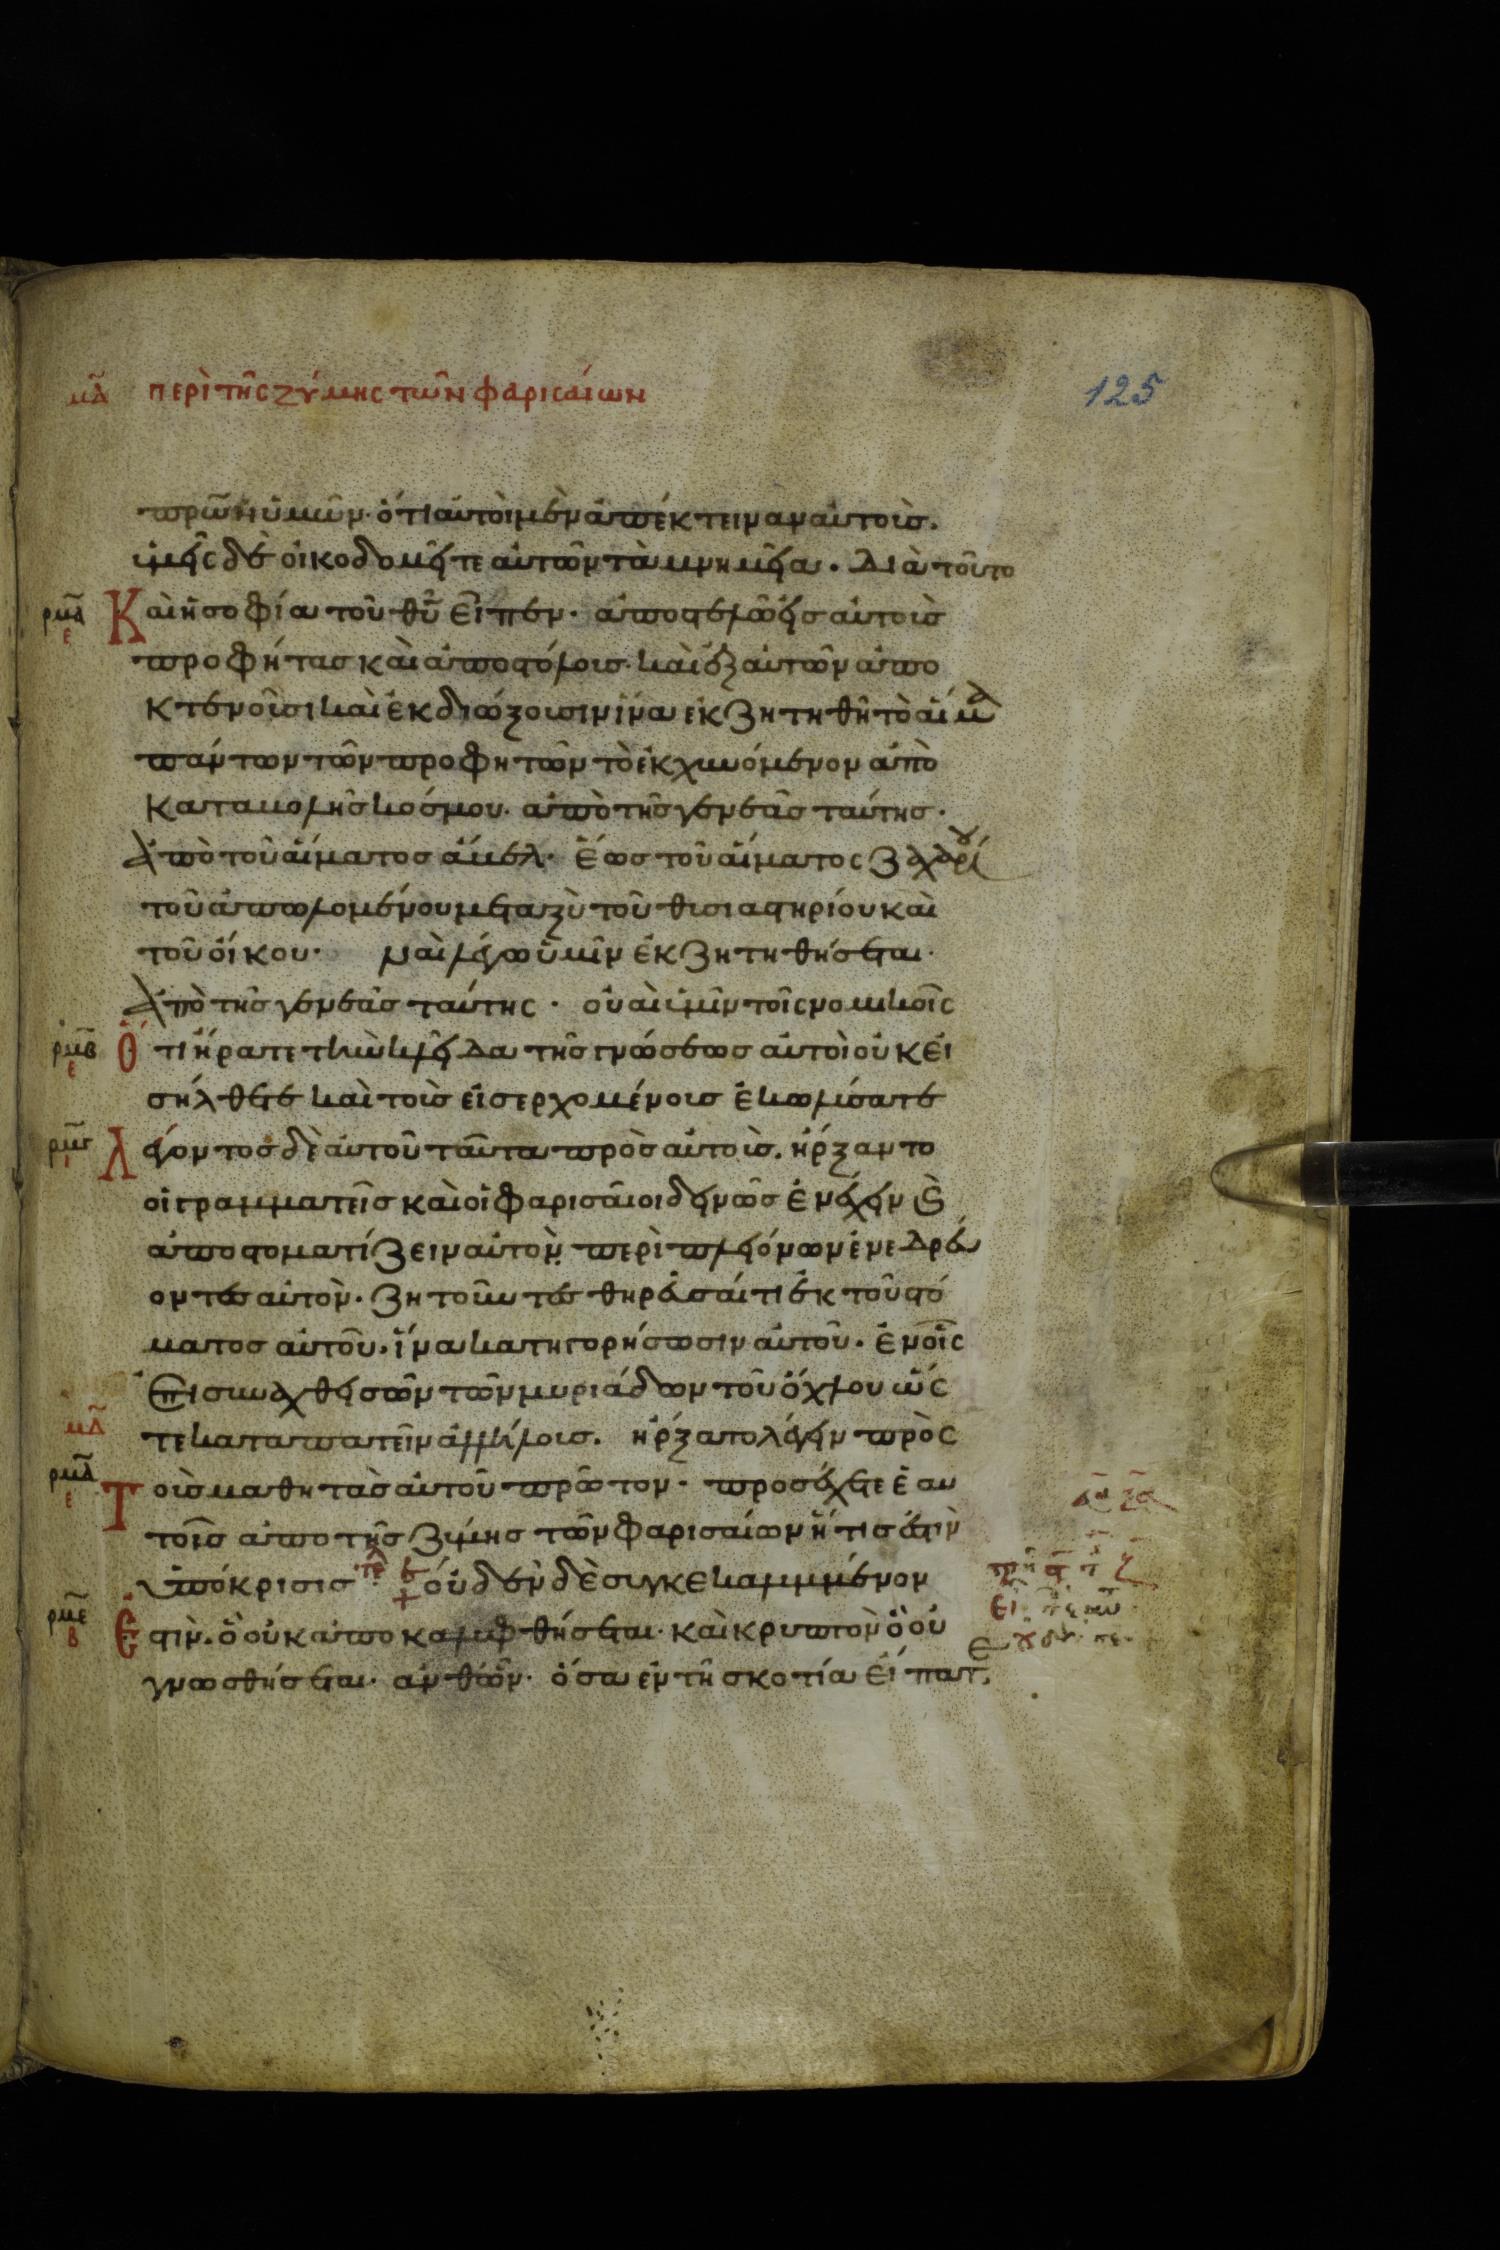 μδ περὶ τῆς ζύμης τῶν φαρισαίων
125
πρῶν ὑμῶν· ὅτι αὐτοὶ μὲν ἀπέκτειναν αὐτούς.
ὑμεῖς δὲ οἰκοδομεῖτε αὐτῶν τὰ μνημεῖα. Διὰ τοῦτο
ρμα ε Καὶ ἡ σοφία τοῦ θυ εἶπεν· ἀποστελῶ εἰς αὐτοὺς
προφήτας καὶ ἀποστόλους. καὶ ἐξ αὐτῶν ἀπο
κτενοῦσι καὶ ἐκδιώξουσιν ἵνα ἐκζητηθῆ τὸ αἷμα
πάντων τῶν προφητῶν τὸ ἐκχυνόμενον ἀπὸ
καταβολῆς κόσμου. ἀπὸ τῆς γενεᾶς ταύτης.
Ἀπὸ τοῦ αἵματος ἄβελ· ἕως τοῦ αἵματος Ζαχαρίου
τοῦ ἀπολομένου μεταξὺ τοῦ θυσιαστηρίου καὶ
τοῦ οἴκου· ναὶ λέγω ὑμῖν ἐκζητηθήσεται.
Ἀπὸ τῆς γενεᾶς ταύτης· οὐαὶ ὑμῖν τοῖς νομικοῖς
ρμβ ε Ὅτι ἤρατε τὴν κλεῖδα τῆς γνώσεως αὐτοὶ οὐκ εἰ
σήλθετε καὶ τοὺς εἰσερχομένους ἐκωλύσατε
ρμγ ι Λέγοντος δὲ αὐτοῦ ταῦτα πρὸς αὐτούς. ἤρξαντο
οἱ γραμματεῖς καὶ οἱ φαρισαῖοι δεινῶς ἐνέχειν καὶ
ἀποστοματίζειν αὐτὸν περὶ πλειόνων ἐνεδρεύ
οντες αὐτὸν. ζητοῦντες θηρεῦσαί τι ἐκ τοῦ στό
ματος αὐτοῦ. ἵνα κατηγορήσωσιν αὐτοῦ. ἐν οἷς
Ἐπισυναχθεισῶν τῶν μυριάδων τοῦ ὄχλου ὥς
μδ τε καταπατεῖν ἀλλήλους. ἤρξατο λέγειν πρὸς
ρμδ ε Τοὺς μαθητὰς αὐτοῦ πρῶτον· προσέχετε ἑαυ
τοῖς ἀπο τῆς ζύμης τῶν φαρισαίων ἥτις ἐστὶν
ὑπόκρισις + οὐδὲν δὲ συγκεκαλυμμένον
ρμε β Ἐστὶν. ὃ οὐκ ἀποκαλυφθήσεται. καὶ κρυπτὸν ὃ οὐ
γνωσθήσεται. ἀνθῶν· ὅσα ἐν τῆ σκοτία εἴπατ